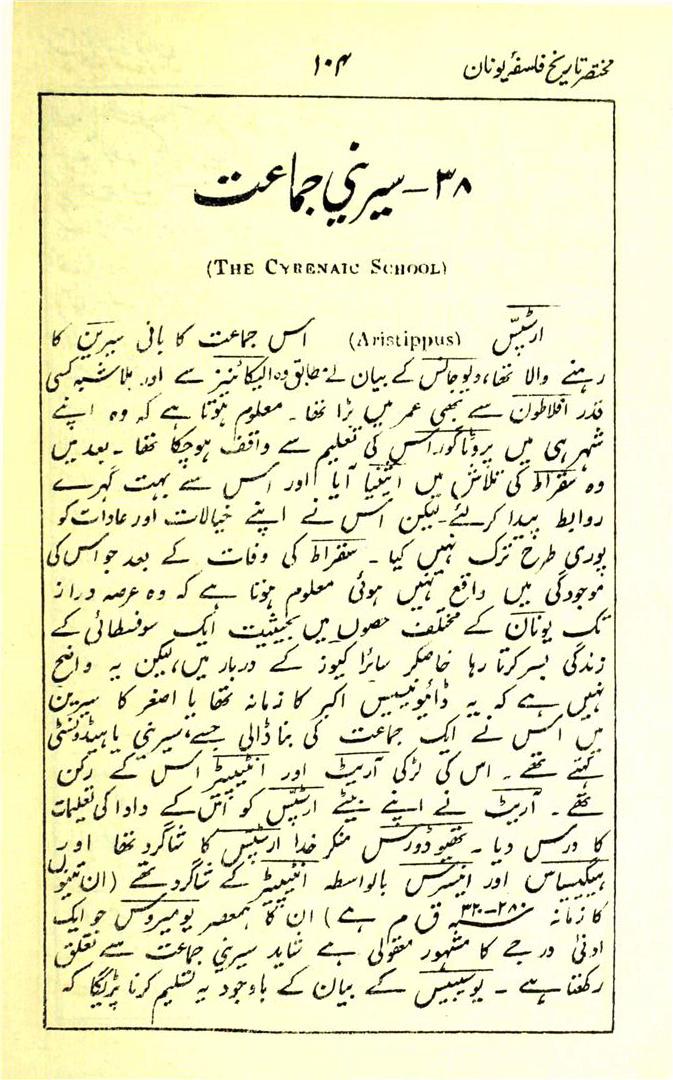 مختصر تاریخ فلسفۂ یونان
۱۰۴
۳۸ - سیرینی جماعت
(THE CYRENAIC SCHOOL)
ارسٹپس (Aristippus) اس جماعت کا بانی سیرین کا
رہنے والا تھا، دیوجانس کے بیان کے مطابق وہ الیکائنیز سے اور بلاشبہ کسی
قدر افلاطون سے بھی عمر میں بڑا تھا ۔ معلوم ہوتا ہے کہ وہ اپنے
شہر ہی میں پروٹاگوراس کی تعلیم سے واقف ہوچکا تھا ۔ بعد میں
وہ سقراط کی تلاش میں ایتھنیا آیا اور اس سے بہت گہرے
روابط پیدا کرلئے۔ لیکن اس نے اپنے خیالات اور عادات کو
پوری طرح ترک نہیں کیا ۔ سقراط کی وفات کے بعد جو اس کی
موجودگی میں واقع نہیں ہوئی معلوم ہوتا ہے کہ وہ عرصہ دراز
تک یونان کے مختلف حصوں میں بحیثیت ایک سوفسطائی کے
زندگی بسر کرتا رہا خاصکر سائراکیوز کے دربار میں، لیکن یہ واضح
نہیں ہے کہ یہ ڈائیونیسیس اکبر کا زمانہ تھا یا اصغر کا سیرین
میں اس نے ایک جماعت کی بنا ڈالی جسے، سیرینی یا ہیڈونسٹی
کہتے تھے ۔ اس کی لڑکی آریٹ اور انٹیپیٹر اس کے رکن
تھے ۔ آریٹ نے اپنے بیٹے ارسٹپس کو اس کے دادا کی تعلیمات
کا درس دیا ۔ تھیوڈورس منکر خدا ارسٹپس کا شاگرد تھا اور
ہیگیسیاس اور انیسرس بالواسطہ انٹیپیٹر کے شاگرد تھے (ان تینوں
کا زمانہ ۳۲۰-۲۸۰ ق م ہے) ان کا ہمعصر یومیروس جو ایک
ادنیٰ درجے کا مشہور معقولی ہے شاید سیرینی جماعت سے تعلق
رکھتا ہے ۔ یوسیبیس کے بیان کے باوجود یہ تسلیم کرنا پڑیگا کہ